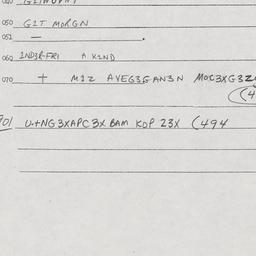 050 GIT MORGN
051 —
060 IND3R-FRI A KIND
070 + M1Z AVEG3GAN3N MOC3XG3Z
(4
701 U+NG3XAPC3X BAM KOP 23X (494